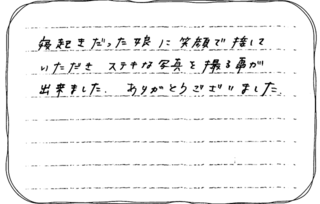 寝起きだった娘に笑顔で接して
いただき ステキな写真を撮る事が
出来ました. ありがとうございました.